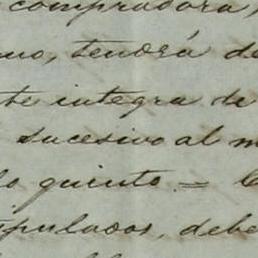 compradora,
mo, tendrá de
te integra de
sucesivo al m
lo quinto.= C
ipulados, debe